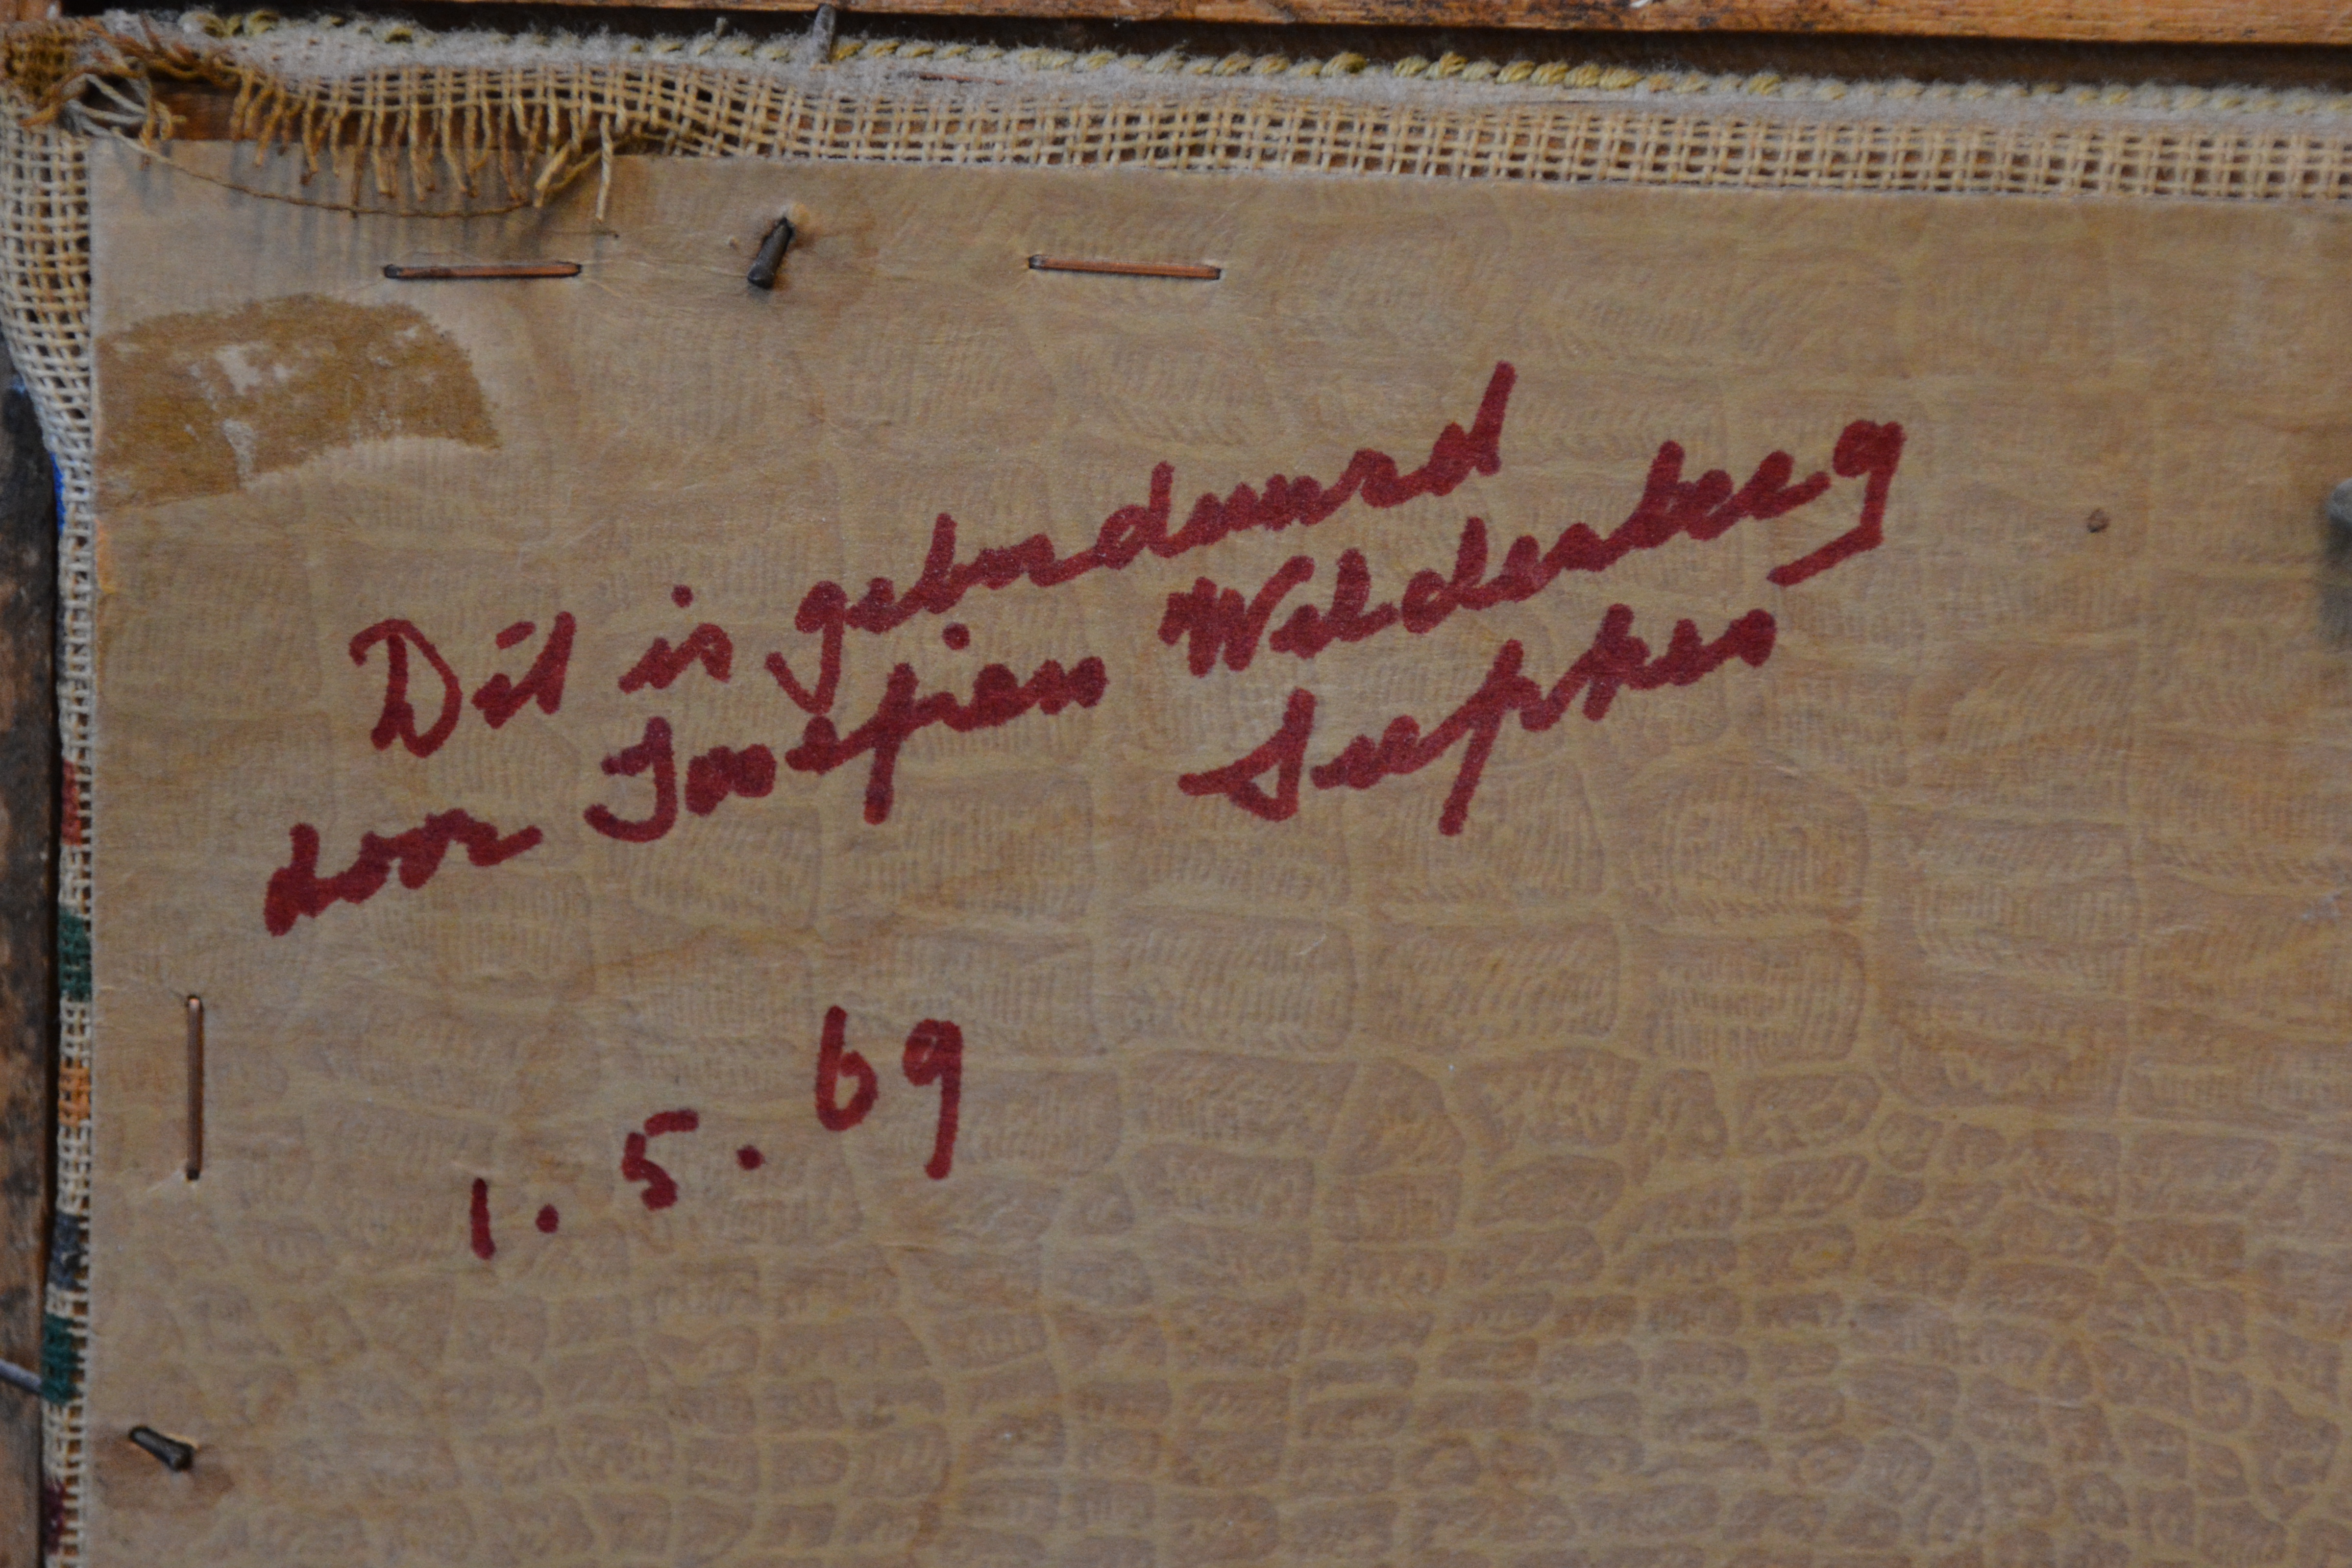 Dit is geborduurd
door Josefien Welderberg
Seepkes
1.5.69